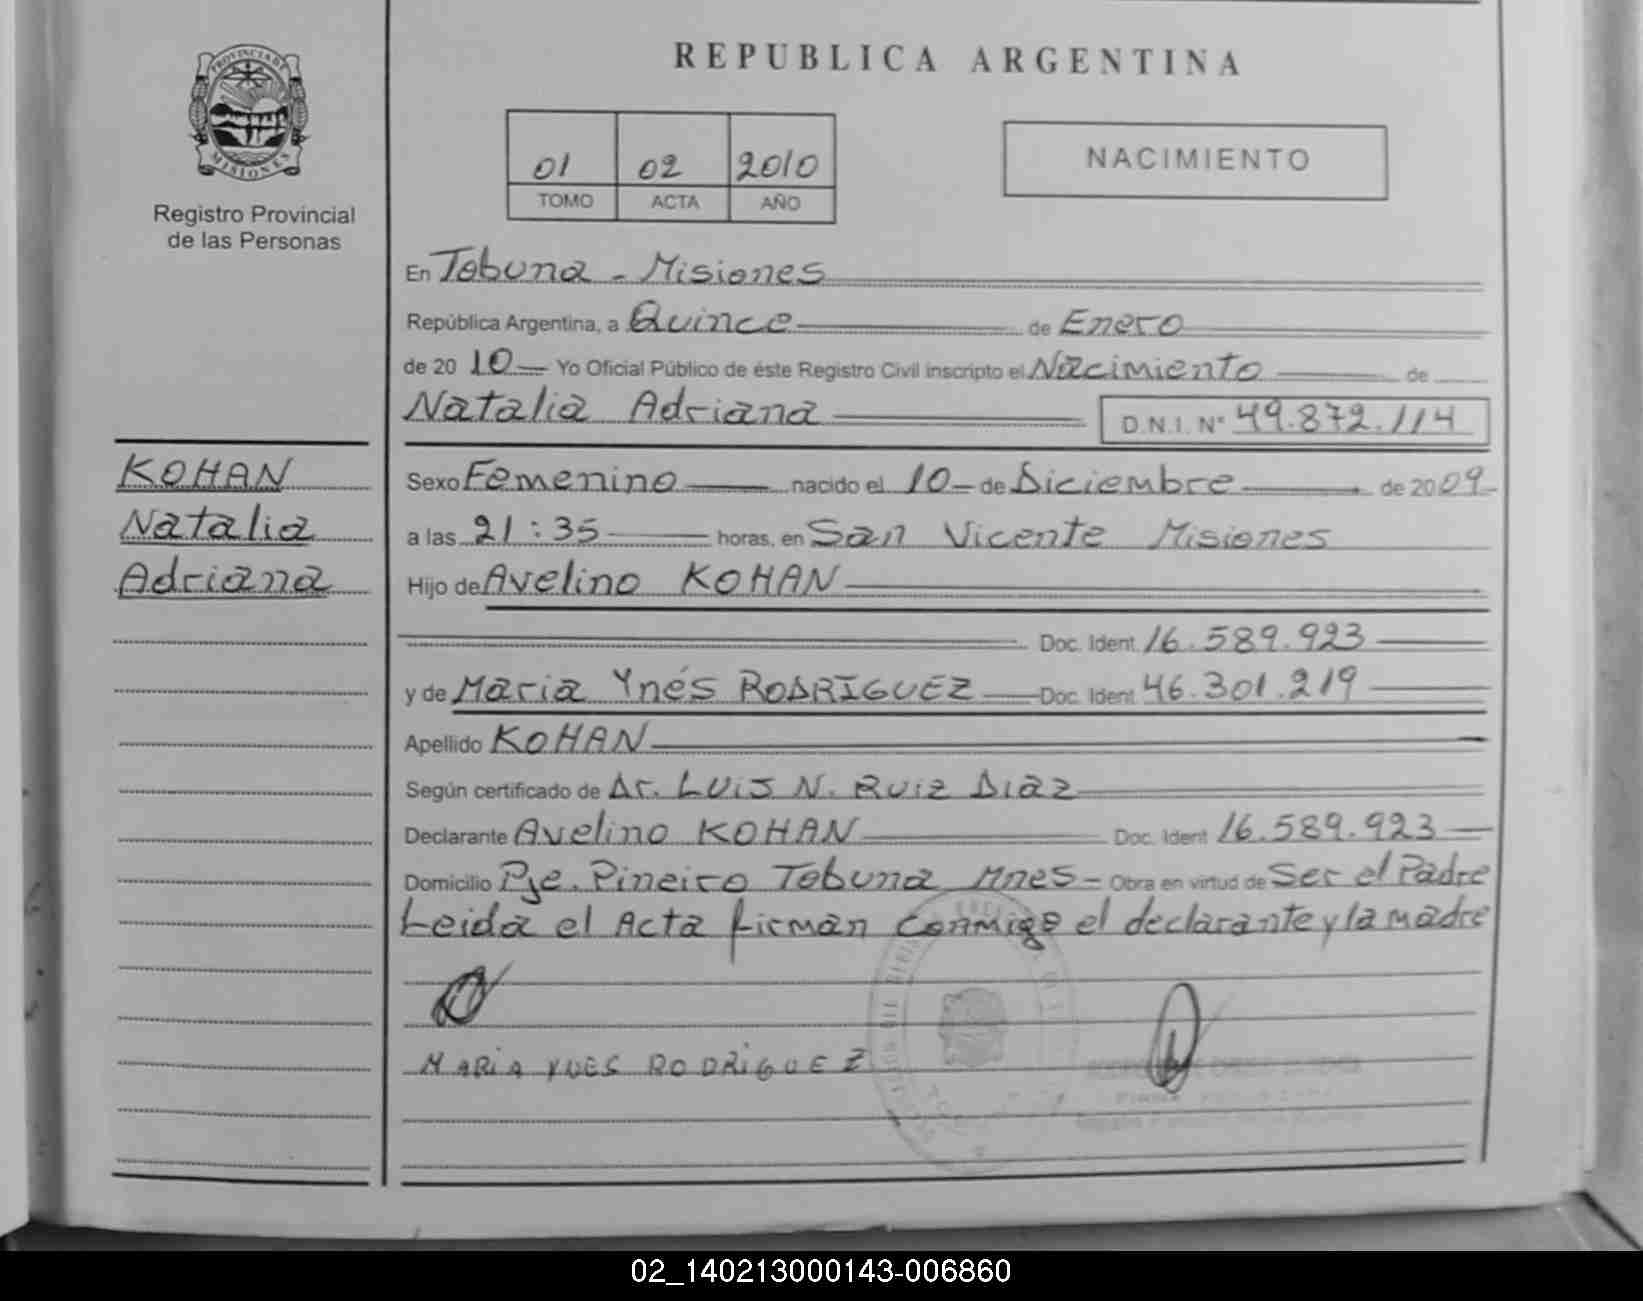 PROVINCIA DE
MISIONES
Registro Provincial
de las Personas
REPUBLICA ARGENTINA
01 02 2010
TOMO ACTA AÑO
NACIMIENTO
En Tobuna - Misiones
República Argentina, a Quince de Enero
de 20 10 Yo Oficial Público de éste Registro Civil inscripto el Nacimiento de
Natalia Adriana D.N.I. N° 49.872.114
KOHAN
Natalia
Adriana
Sexo Femenino nacido el 10 de Diciembre de 20 09
a las 21:35 horas, en San Vicente Misiones
Hijo de Avelino KOHAN
Doc. Ident. 16.589.923
y de Maria Ynés RODRIGUEZ Doc. Ident. 46.301.219
Apellido KOHAN
Según certificado de Dr. LUIS N. RUIZ DIAZ
Declarante Avelino KOHAN Doc. Ident 16.589.923
Domicilio Pje. Pineiro Tobuna Mnes - Obra en virtud de Ser el Padre
Leida el Acta firman conmigo el declarante y la madre
MARIA YNES RODRIGUEZ
02_140213000143-006860